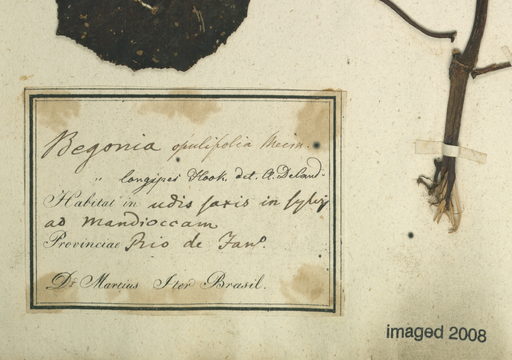 Begonia opulifolia
" longipes Hook. det. A. Decand.
Habitat in udis saxis in sylvis
ad Mandioccam
Provinciae Rio de Jan°.
Dr. Martius Iter Brasil.
imaged 2008